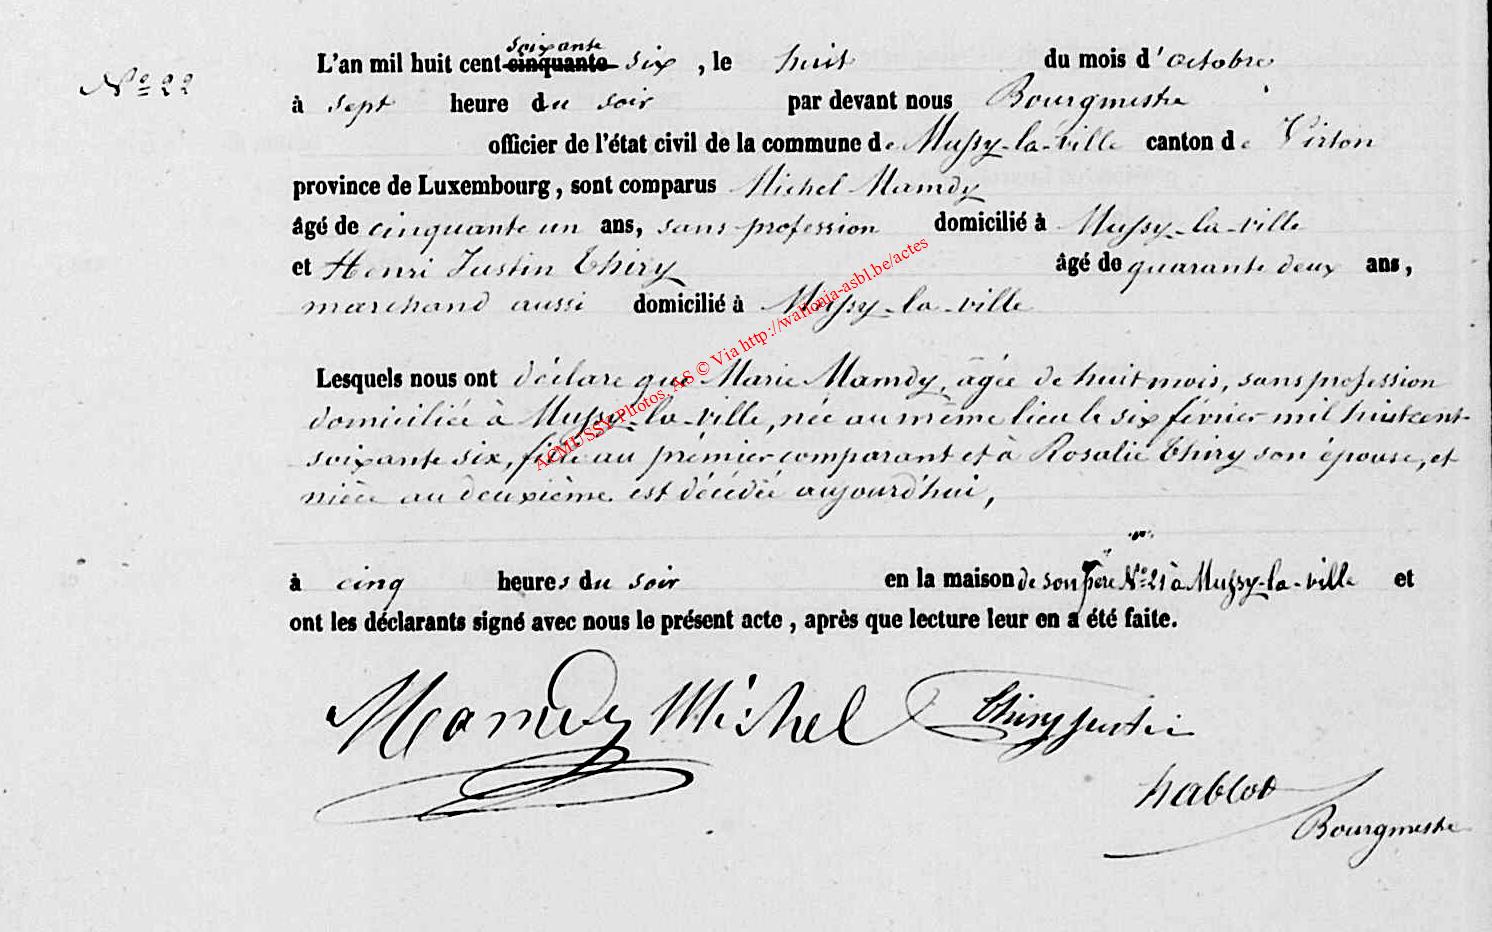 N° 22
L'an mil huit cent cinquante soixante six, le huit du mois d'octobre
à sept heure du soir par devant nous Bourgmestre
officier de l'état civil de la commune de Mussy-la-ville canton de Virton
province de Luxembourg, sont comparus Michel Mamdy
âgé de cinquante un ans, sans profession domicilié à Mussy-la-ville
et Henri Justin Thiry âgé de quarante deux ans,
marchand aussi domicilié à Mussy-la-ville
Lesquels nous ont déclaré que Marie Mamdy, âgée de huit mois, sans profession
domiciliée à Mussy-la-ville, née au même lieu le six février mil huit cent
soixante six, fille au prémier comparant et à Rosalie Thiry son épouse, et
nièce au deuxième. est décédée aujourd'hui,
à cinq heures du soir en la maison de son père N° 21 à Mussy-la-ville et
ont les déclarants signé avec nous le présent acte, après que lecture leur en a été faite.
Mamdy Michel Thiry Justin
hablot
Bourgmestre
ACMUSSY Photos. AS © Via http://wallonia-asbl.be/actes